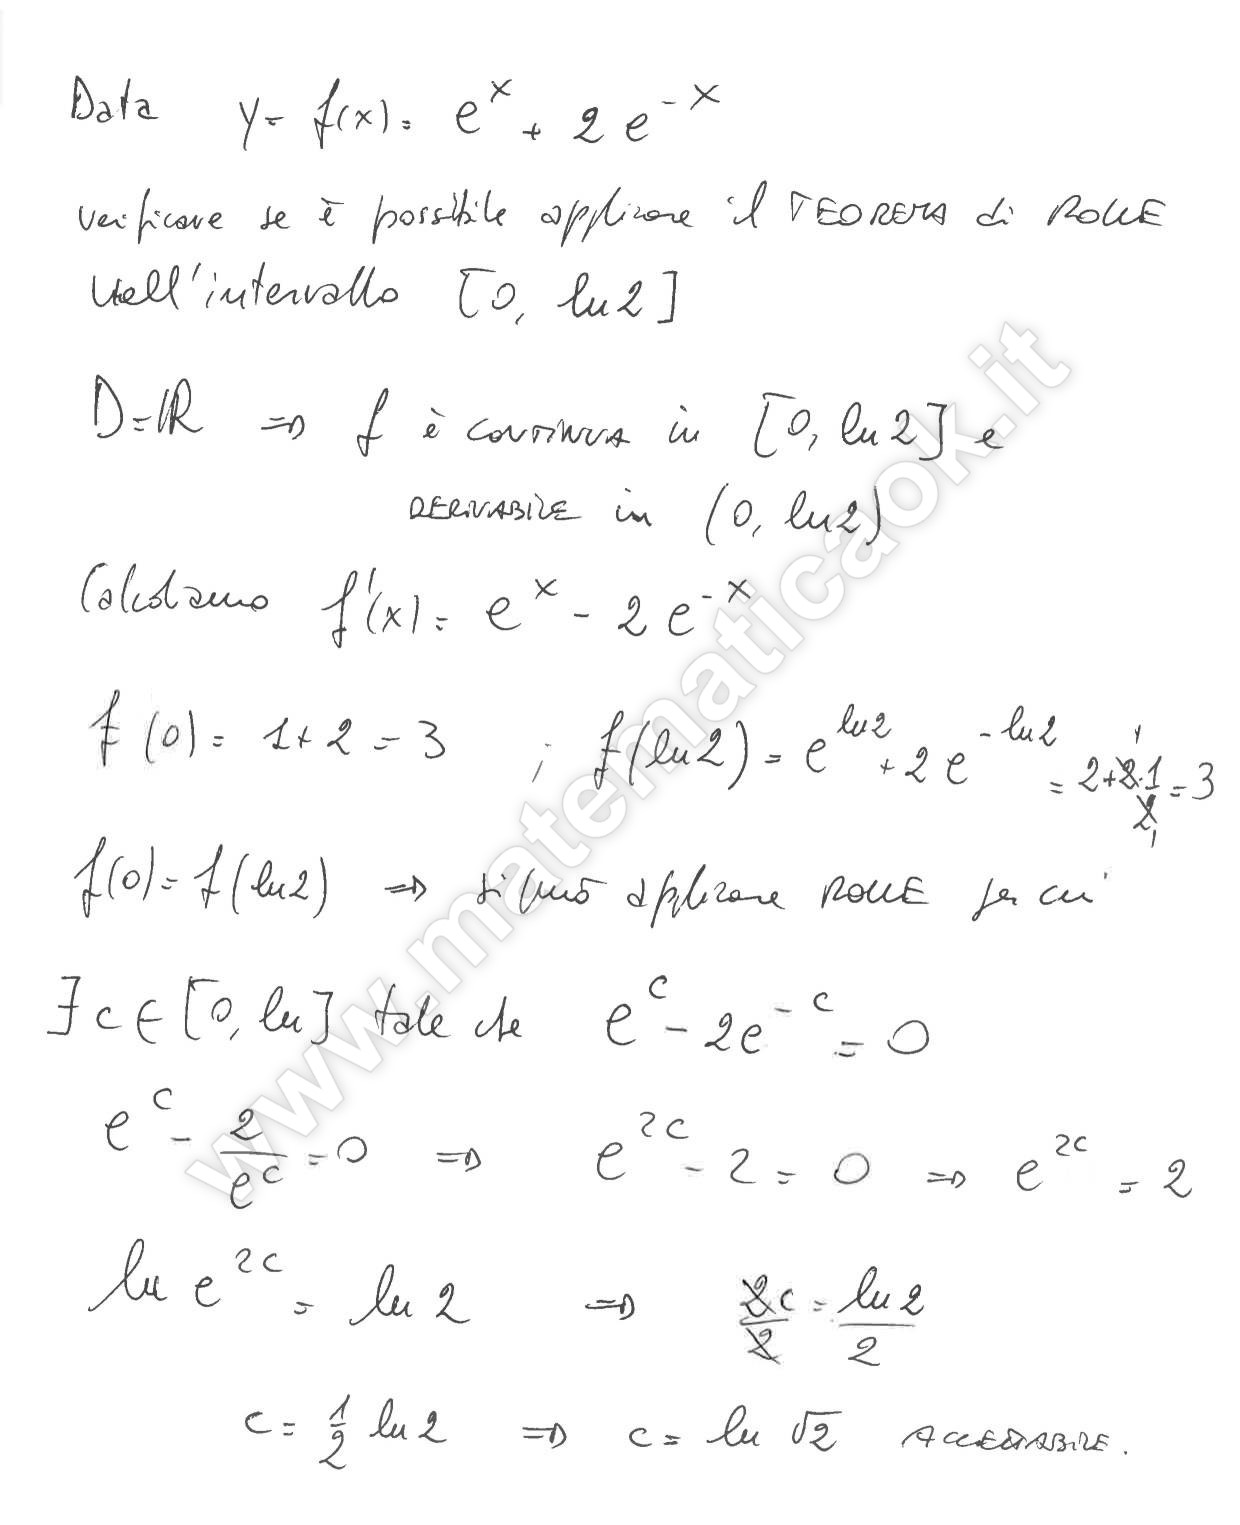 Data y = f(x) = e^x + 2e^{-x}
verificare se è possibile applicare il TEOREMA di ROLLE
nell'intervallo [0, ln2]
D=ℝ ⇒ f è CONTINUA in [0, ln2] e
DERIVABILE in (0, ln2)
Calcoliamo f'(x) = e^x - 2e^{-x}
f(0) = 1+2 = 3 ; f(ln2) = e^{ln2} + 2e^{-ln2} = 2+2·1/2 = 3
f(0) = f(ln2) ⇒ si può applicare ROLLE per cui
∃ c ∈ [0, ln] tale che e^c - 2e^{-c} = 0
e^c - 2/e^c = 0 ⇒ e^{2c} - 2 = 0 ⇒ e^{2c} = 2
ln e^{2c} = ln 2 ⇒ 2c/2 = ln2/2
c = 1/2 ln2 ⇒ c = ln √2 ACCETTABILE.
www.matematicaok.it